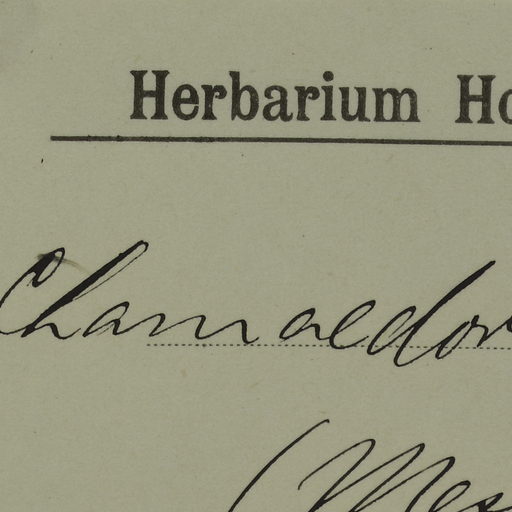 Herbarium Ho
Chamaedor
(Mex